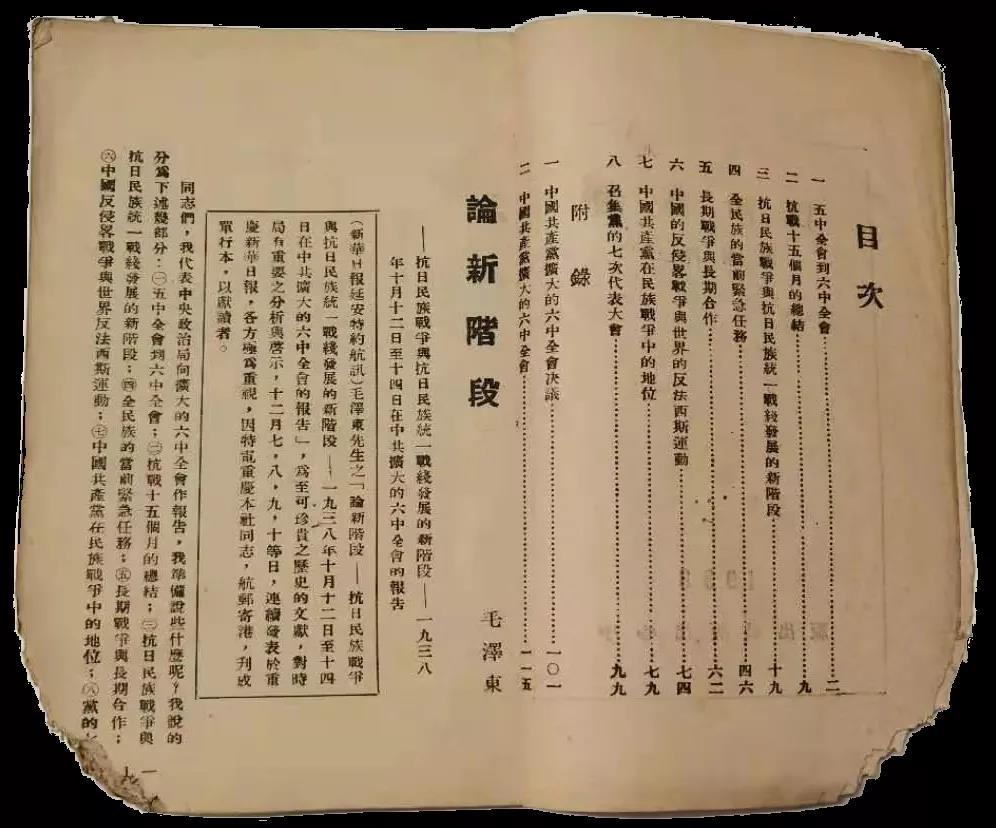 目次
一 五中全會到六中全會……二
二 抗戰十五個月的總結……九
三 抗日民族戰爭與抗日民族統一戰綫發展的新階段……十九
四 全民族的當前緊急任務……四六
五 長期戰爭與長期合作……六二
六 中國的反侵畧戰爭與世界的反法西斯運動……七四
七 中國共產黨在民族戰爭中的地位……七九
八 召集黨的七次代表大會……九九
附錄
一 中國共產黨擴大的六中全會决議……一〇一
二 中國共產黨擴大的六中全會……一一五
論新階段
毛澤東
——抗日民族戰爭與抗日民族統一戰綫發展的新階段——一九三八
年十月十二日至十四日在中共擴大的六中全會的報告
（新華日報延安特約航訊）毛澤東先生之「論新階段——抗日民族戰爭
與抗日民族統一戰綫發展的新階段——一九三八年十月十二日至十四
日在中共擴大的六中全會的報告」，爲至可珍貴之歷史的文獻，對時
局有重要之分析與啓示，十二月七，八，九，十等日，連續發表於重
慶新華日報，各方極爲重視，因特電重慶本社同志，航郵寄港，刋成
單行本，以獻讀者。
同志們，我代表中央政治局向擴大的六中全會作報告，我準備說些什麽呢？我說的
分爲下述幾部分：㊀五中全會到六中全會；㊁抗戰十五個月的總結；㊂抗日民族戰爭與
抗日民族統一戰綫發展的新階段；㊃全民族的當前緊急任務；㊄長期戰爭與長期合作；
㊅中國反侵畧戰爭與世界反法西斯運動；㊆中國共產黨在民族戰爭中的地位；㊇黨的七
一